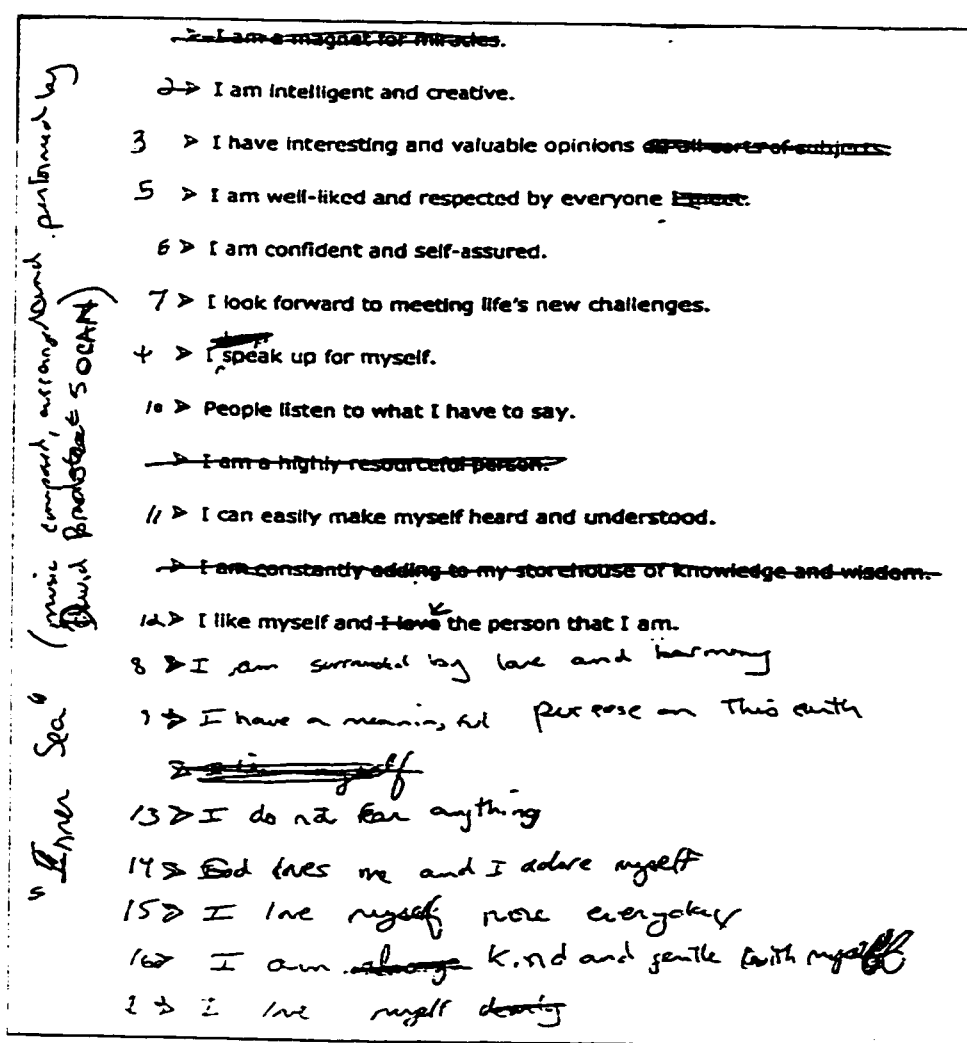 I am a magnet for miracles.
2 > I am intelligent and creative.
3 > I have interesting and valuable opinions on all sorts of subjects.
5 > I am well-liked and respected by everyone I meet.
6 > I am confident and self-assured.
7 > I look forward to meeting life's new challenges.
> I speak up for myself.
10 > People listen to what I have to say.
> I am a highly resourceful person.
11 > I can easily make myself heard and understood.
> I am constantly adding to my storehouse of knowledge and wisdom.
12 > I like myself and I love the person that I am.
8 > I am surrounded by love and harmony
9 > I have a meaningful purpose on This earth
13 > I do not fear anything
14 > God loves me and I adore myself
15 > I love myself more everyday
16 > I am kind and gentle with myself
2 > I love myself
"Inner Sea" (music composed, arranged and performed by
David SOCAN)